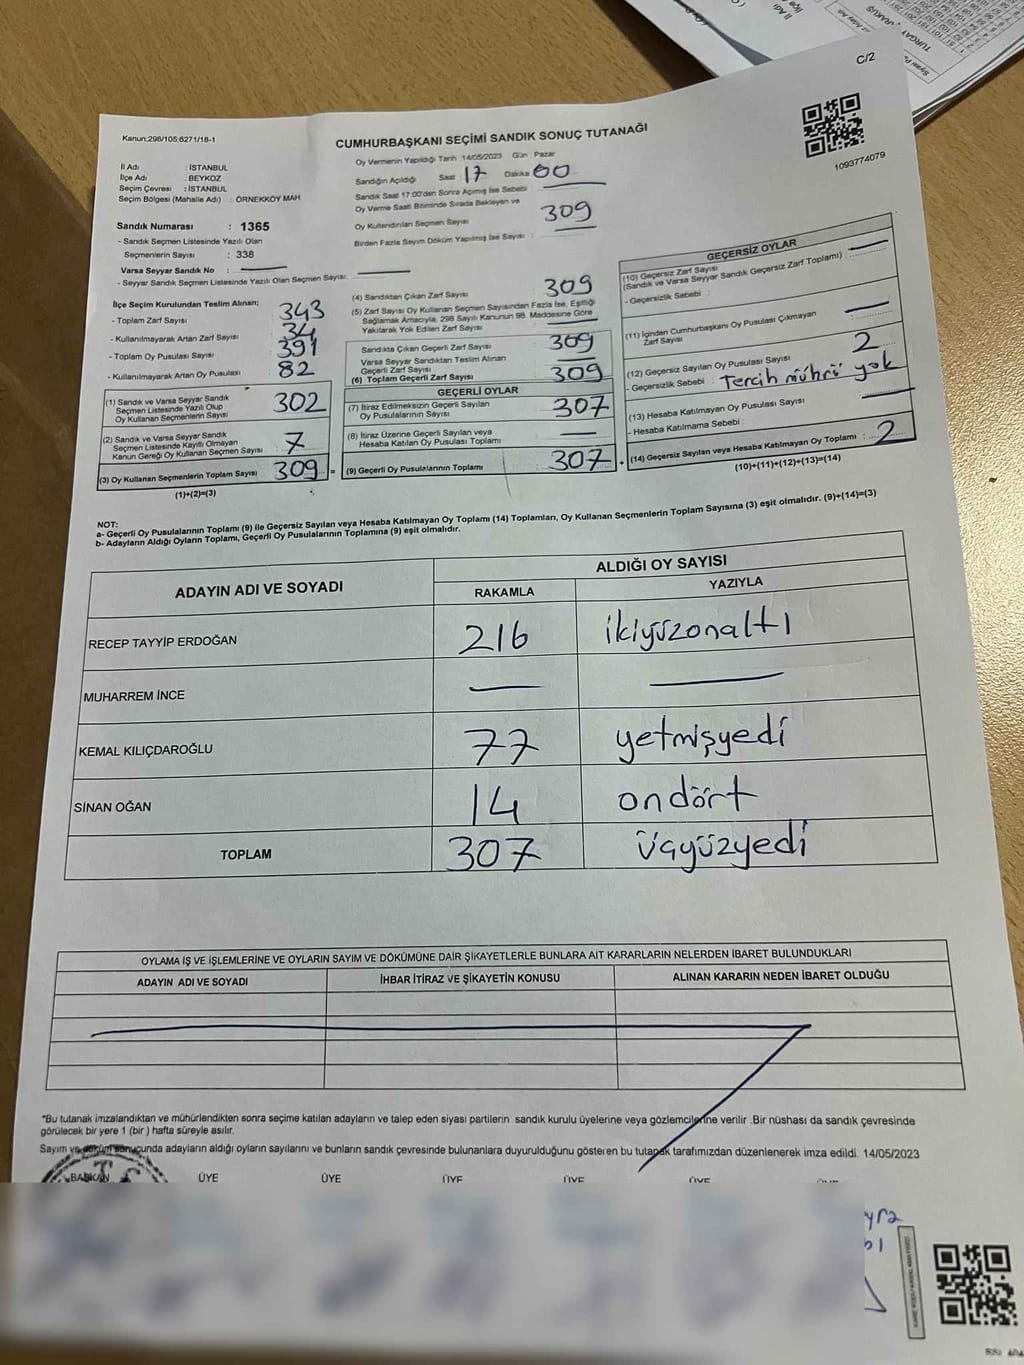 C/2
Kanun:298/105;6271/18-1
CUMHURBAŞKANI SEÇİMİ SANDIK SONUÇ TUTANAĞI
1093774079
İl Adı : İSTANBUL
İlçe Adı : BEYKOZ
Seçim Çevresi : İSTANBUL
Seçim Bölgesi (Mahalle Adı) : ÖRNEKKÖY MAH
Sandık Numarası : 1365
- Sandık Seçmen Listesinde Yazılı Olan
Seçmenlerin Sayısı : 338
Varsa Seyyar Sandık No :
- Seyyar Sandık Seçmen Listesinde Yazılı Olan Seçmen Sayısı:
Oy Vermenin Yapıldığı Tarih :14/05/2023 Gün : Pazar
Sandığın Açıldığı Saat : 17 Dakika : 00
Sandık Saat 17:00'den Sonra Açılmış İse Sebebi :
Oy Verme Saati Bitiminde Sırada Bekleyen ve
Oy Kullandırılan Seçmen Sayısı : 309
Birden Fazla Sayım Döküm Yapılmış İse Sayısı :
İlçe Seçim Kurulundan Teslim Alınan;
- Toplam Zarf Sayısı : 343
- Kullanılmayarak Artan Zarf Sayısı : 34
- Toplam Oy Pusulası Sayısı : 391
- Kullanılmayarak Artan Oy Pusulası : 82
(1) Sandık ve Varsa Seyyar Sandık
Seçmen Listesinde Yazılı Olup
Oy Kullanan Seçmenlerin Sayısı : 302
(2) Sandık ve Varsa Seyyar Sandık
Seçmen Listesinde Kayıtlı Olmayan
Kanun Gereği Oy Kullanan Seçmen Sayısı : 7
(3) Oy Kullanan Seçmenlerin Toplam Sayısı : 309 =
(1)+(2)=(3)
(4) Sandıktan Çıkan Zarf Sayısı : 309
(5) Zarf Sayısı Oy Kullanan Seçmen Sayısından Fazla İse, Eşitliği
Sağlamak Amacıyla, 298 Sayılı Kanunun 98. Maddesine Göre
Yakılarak Yok Edilen Zarf Sayısı
Sandıkta Çıkan Geçerli Zarf Sayısı : 309
Varsa Seyyar Sandıktan Teslim Alınan
Geçerli Zarf Sayısı :
(6) Toplam Geçerli Zarf Sayısı : 309
GEÇERLİ OYLAR
(7) İtiraz Edilmeksizin Geçerli Sayılan
Oy Pusulalarının Sayısı : 307
(8) İtiraz Üzerine Geçerli Sayılan veya
Hesaba Katılan Oy Pusulası Toplamı :
(9) Geçerli Oy Pusulalarının Toplamı : 307 +
GEÇERSİZ OYLAR
(10) Geçersiz Zarf Sayısı
(Sandık ve Varsa Seyyar Sandık Geçersiz Zarf Toplamı) :
- Geçersizlik Sebebi :
(11) İçinden Cumhurbaşkanı Oy Pusulası Çıkmayan
Zarf Sayısı :
(12) Geçersiz Sayılan Oy Pusulası Sayısı : 2
- Geçersizlik Sebebi : Tercih mührü yok
(13) Hesaba Katılmayan Oy Pusulası Sayısı :
- Hesaba Katılmama Sebebi :
(14) Geçersiz Sayılan veya Hesaba Katılmayan Oy Toplamı : 2
(10)+(11)+(12)+(13)=(14)
NOT:
a- Geçerli Oy Pusulalarının Toplamı (9) ile Geçersiz Sayılan veya Hesaba Katılmayan Oy Toplamı (14) Toplamları, Oy Kullanan Seçmenlerin Toplam Sayısına (3) eşit olmalıdır. (9)+(14)=(3)
b- Adayların Aldığı Oyların Toplamı, Geçerli Oy Pusulalarının Toplamına (9) eşit olmalıdır.
ADAYIN ADI VE SOYADI ALDIĞI OY SAYISI
RAKAMLA YAZIYLA
RECEP TAYYİP ERDOĞAN 216 ikiyüzonaltı
MUHARREM İNCE
KEMAL KILIÇDAROĞLU 77 yetmişyedi
SİNAN OĞAN 14 ondört
TOPLAM 307 üçyüzyedi
OYLAMA İŞ VE İŞLEMLERİNE VE OYLARIN SAYIM VE DÖKÜMÜNE DAİR ŞİKAYETLERLE BUNLARA AİT KARARLARIN NELERDEN İBARET BULUNDUKLARI
ADAYIN ADI VE SOYADI İHBAR İTİRAZ VE ŞİKAYETİN KONUSU ALINAN KARARIN NEDEN İBARET OLDUĞU
*Bu tutanak imzalandıktan ve mühürlendikten sonra seçime katılan adayların ve talep eden siyasi partilerin sandık kurulu üyelerine veya gözlemcilerine verilir .Bir nüshası da sandık çevresinde
görülecek bir yere 1 (bir ) hafta süreyle asılır.
Sayım ve döküm sonucunda adayların aldığı oyların sayılarını ve bunların sandık çevresinde bulunanlara duyurulduğunu gösteren bu tutanak tarafımızdan düzenlenerek imza edildi. 14/05/2023
BAŞKAN ÜYE ÜYE ÜYE ÜYE ÜYE